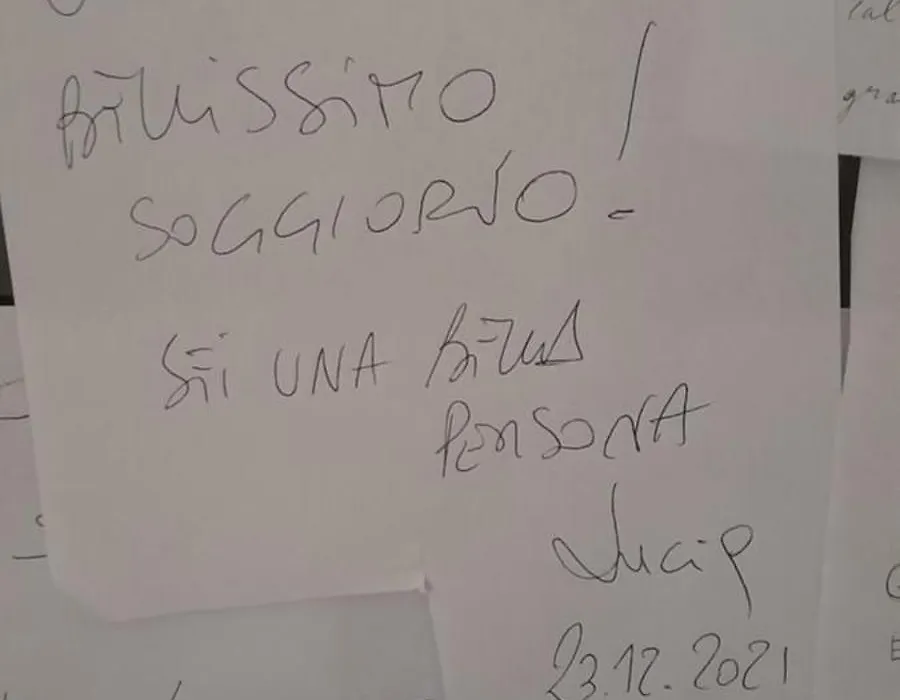 BELLISSIMO
SOGGIORNO!
SEI UNA BELLA
PERSONA
Lucia
23.12.2021
gra